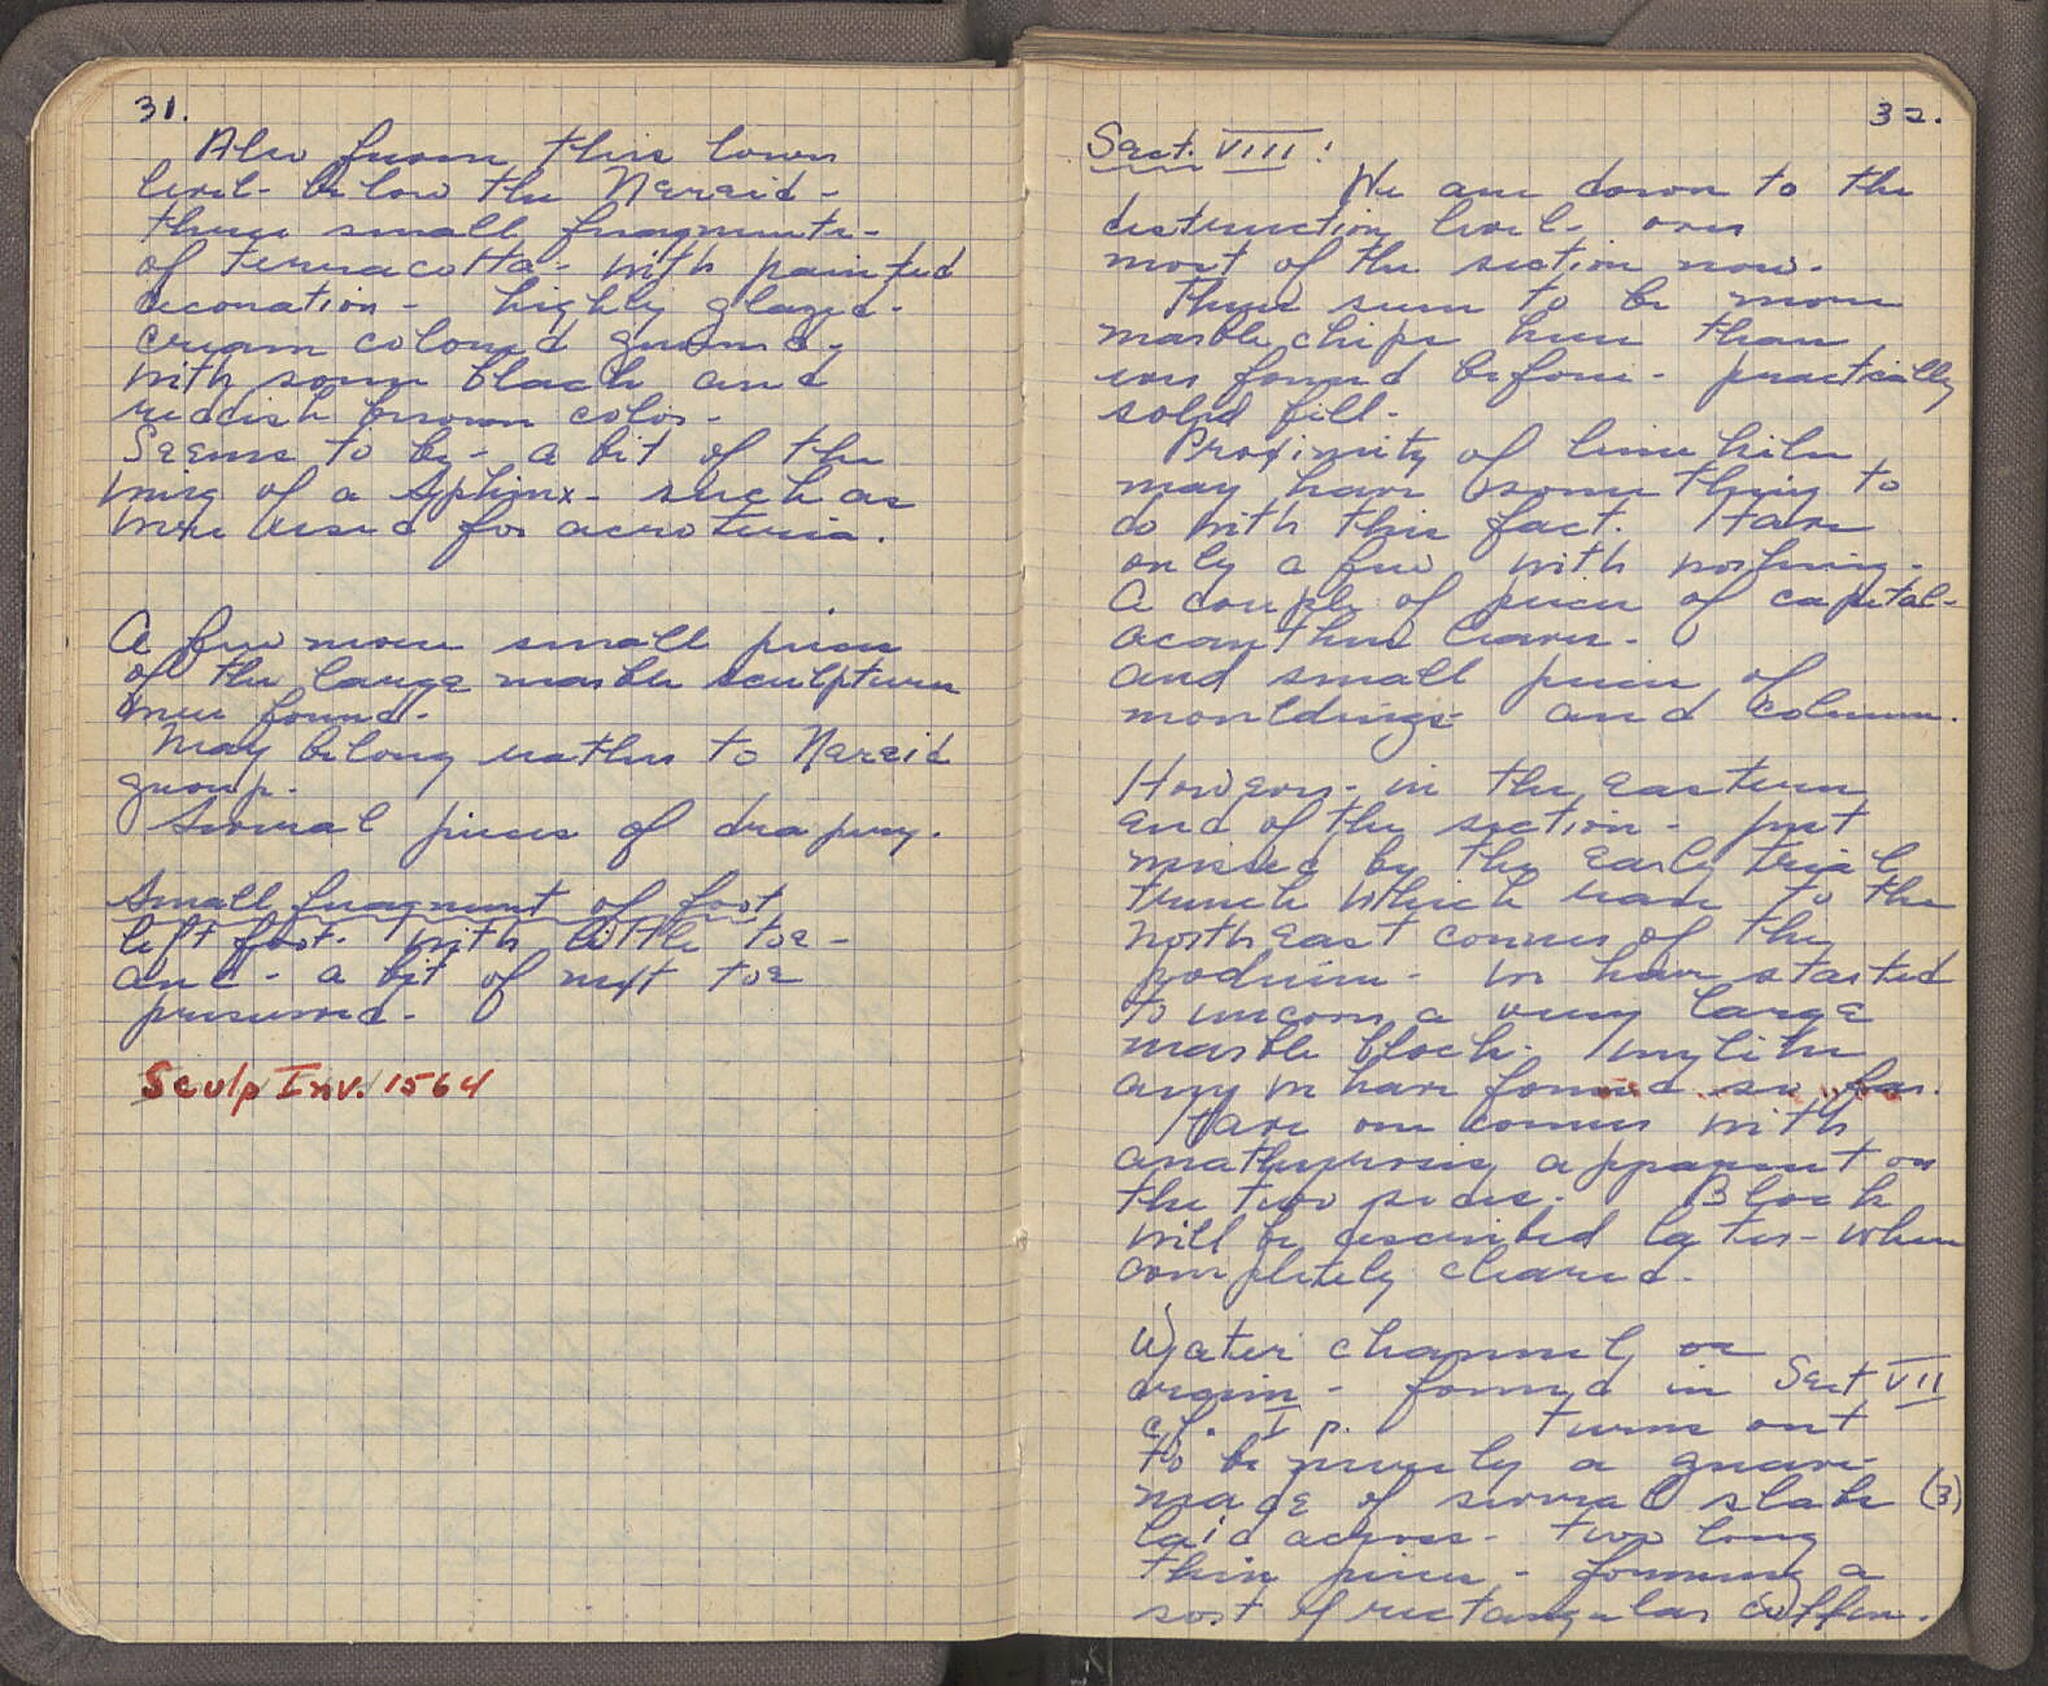 31.
Also from this lower
level - below the Nereid -
three small fragments -
of terracotta - with painted
decoration - highly glazed -
cream colored ground -
with some black and
reddish brown color -
Seems to be - a bit of the
wing of a sphinx - such as
were used for acroteria.
A few more small pieces
of the large marble sculpture
were found -
May belong rather to Nereid
group -
Several pieces of drapery.
Small fragment of foot
left foot - with little toe -
and - a bit of next toe
preserved -
Sculp Inv. 1564
32.
Sect. VIII:
We are down to the
destruction level - over
most of the section now -
There seem to be more
marble chips here than
ever found before - practically
solid fill -
Proximity of lime kiln
may have something to
do with this fact. Have
only a few with working -
A couple of pieces of capital -
acanthus leaves -
and small pieces of
mouldings - and column.
However - in the eastern
end of the section - just
missed by the early trial
trench which ran to the
northeast corner of the
podium - we have started
to uncover a very large
marble block -
any we have found so far.
Have one corner with
anathyrosis apparent on
the two sides - Block
will be described later - when
completely cleared -
Water channel or
drain - found in Sect VII
cf. I p. turns out
to be merely a grave -
made of several slabs (3)
laid across - two long
thin pieces - forming a
sort of rectangular coffin.